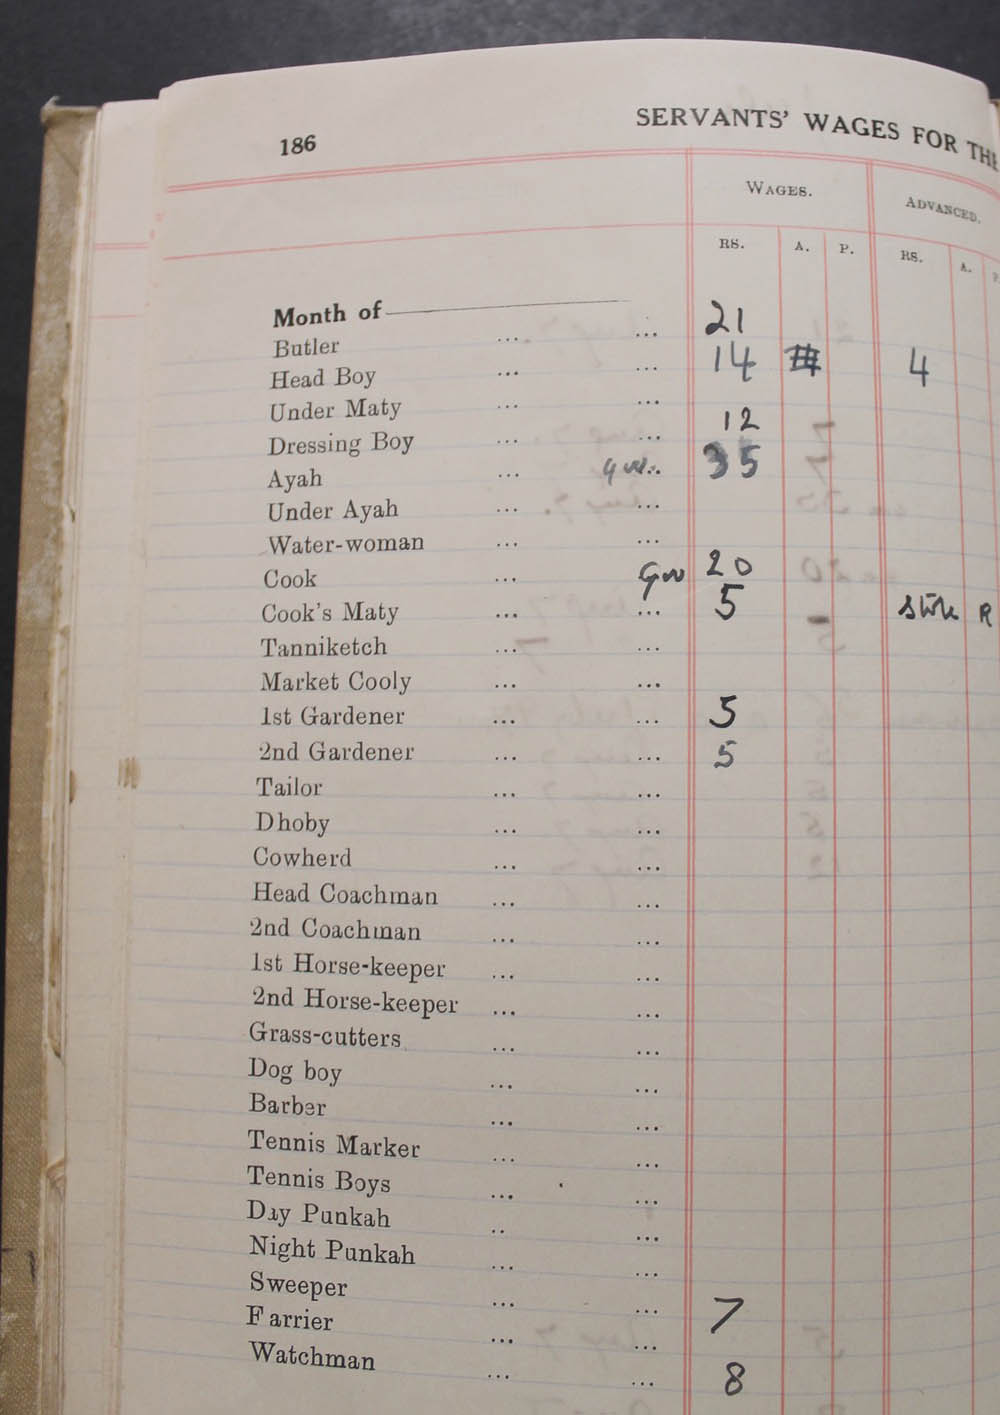 186
SERVANTS' WAGES FOR THE
WAGES. ADVANCED.
RS. A. P. RS. A. P.
Month of
Butler ... ... 21
Head Boy ... ... 14 4
Under Maty ... ...
Dressing Boy ... ... 12
Ayah ... 35
Under Ayah ... ...
Water-woman ... ...
Cook ... 20
Cook's Maty ... ... 5
Tanniketch ... ...
Market Cooly ... ...
1st Gardener ... ... 5
2nd Gardener ... ... 5
Tailor ... ...
Dhoby ... ...
Cowherd ... ...
Head Coachman ... ...
2nd Coachman ... ...
1st Horse-keeper ... ...
2nd Horse-keeper ... ...
Grass-cutters ... ...
Dog boy ... ...
Barber ... ...
Tennis Marker ... ...
Tennis Boys ... ...
Day Punkah .. ...
Night Punkah ... ...
Sweeper ... ... 7
Farrier ... ...
Watchman ... ... 8